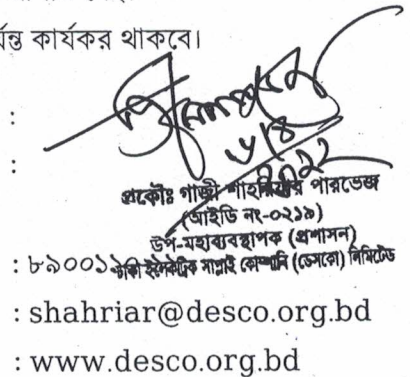 র্যন্ত কার্যকর থাকবে।
:
:
প্রকৌঃ গাজী শাহরিয়ার পারভেজ
(আইডি নং-০২১৯)
উপ-মহাব্যবস্থাপক (প্রশাসন)
: ৮৯০০১১ ঢাকা ইলেকট্রিক সাপ্লাই কোম্পানি (ডেসকো) লিমিটেড
: shahriar@desco.org.bd
: www.desco.org.bd